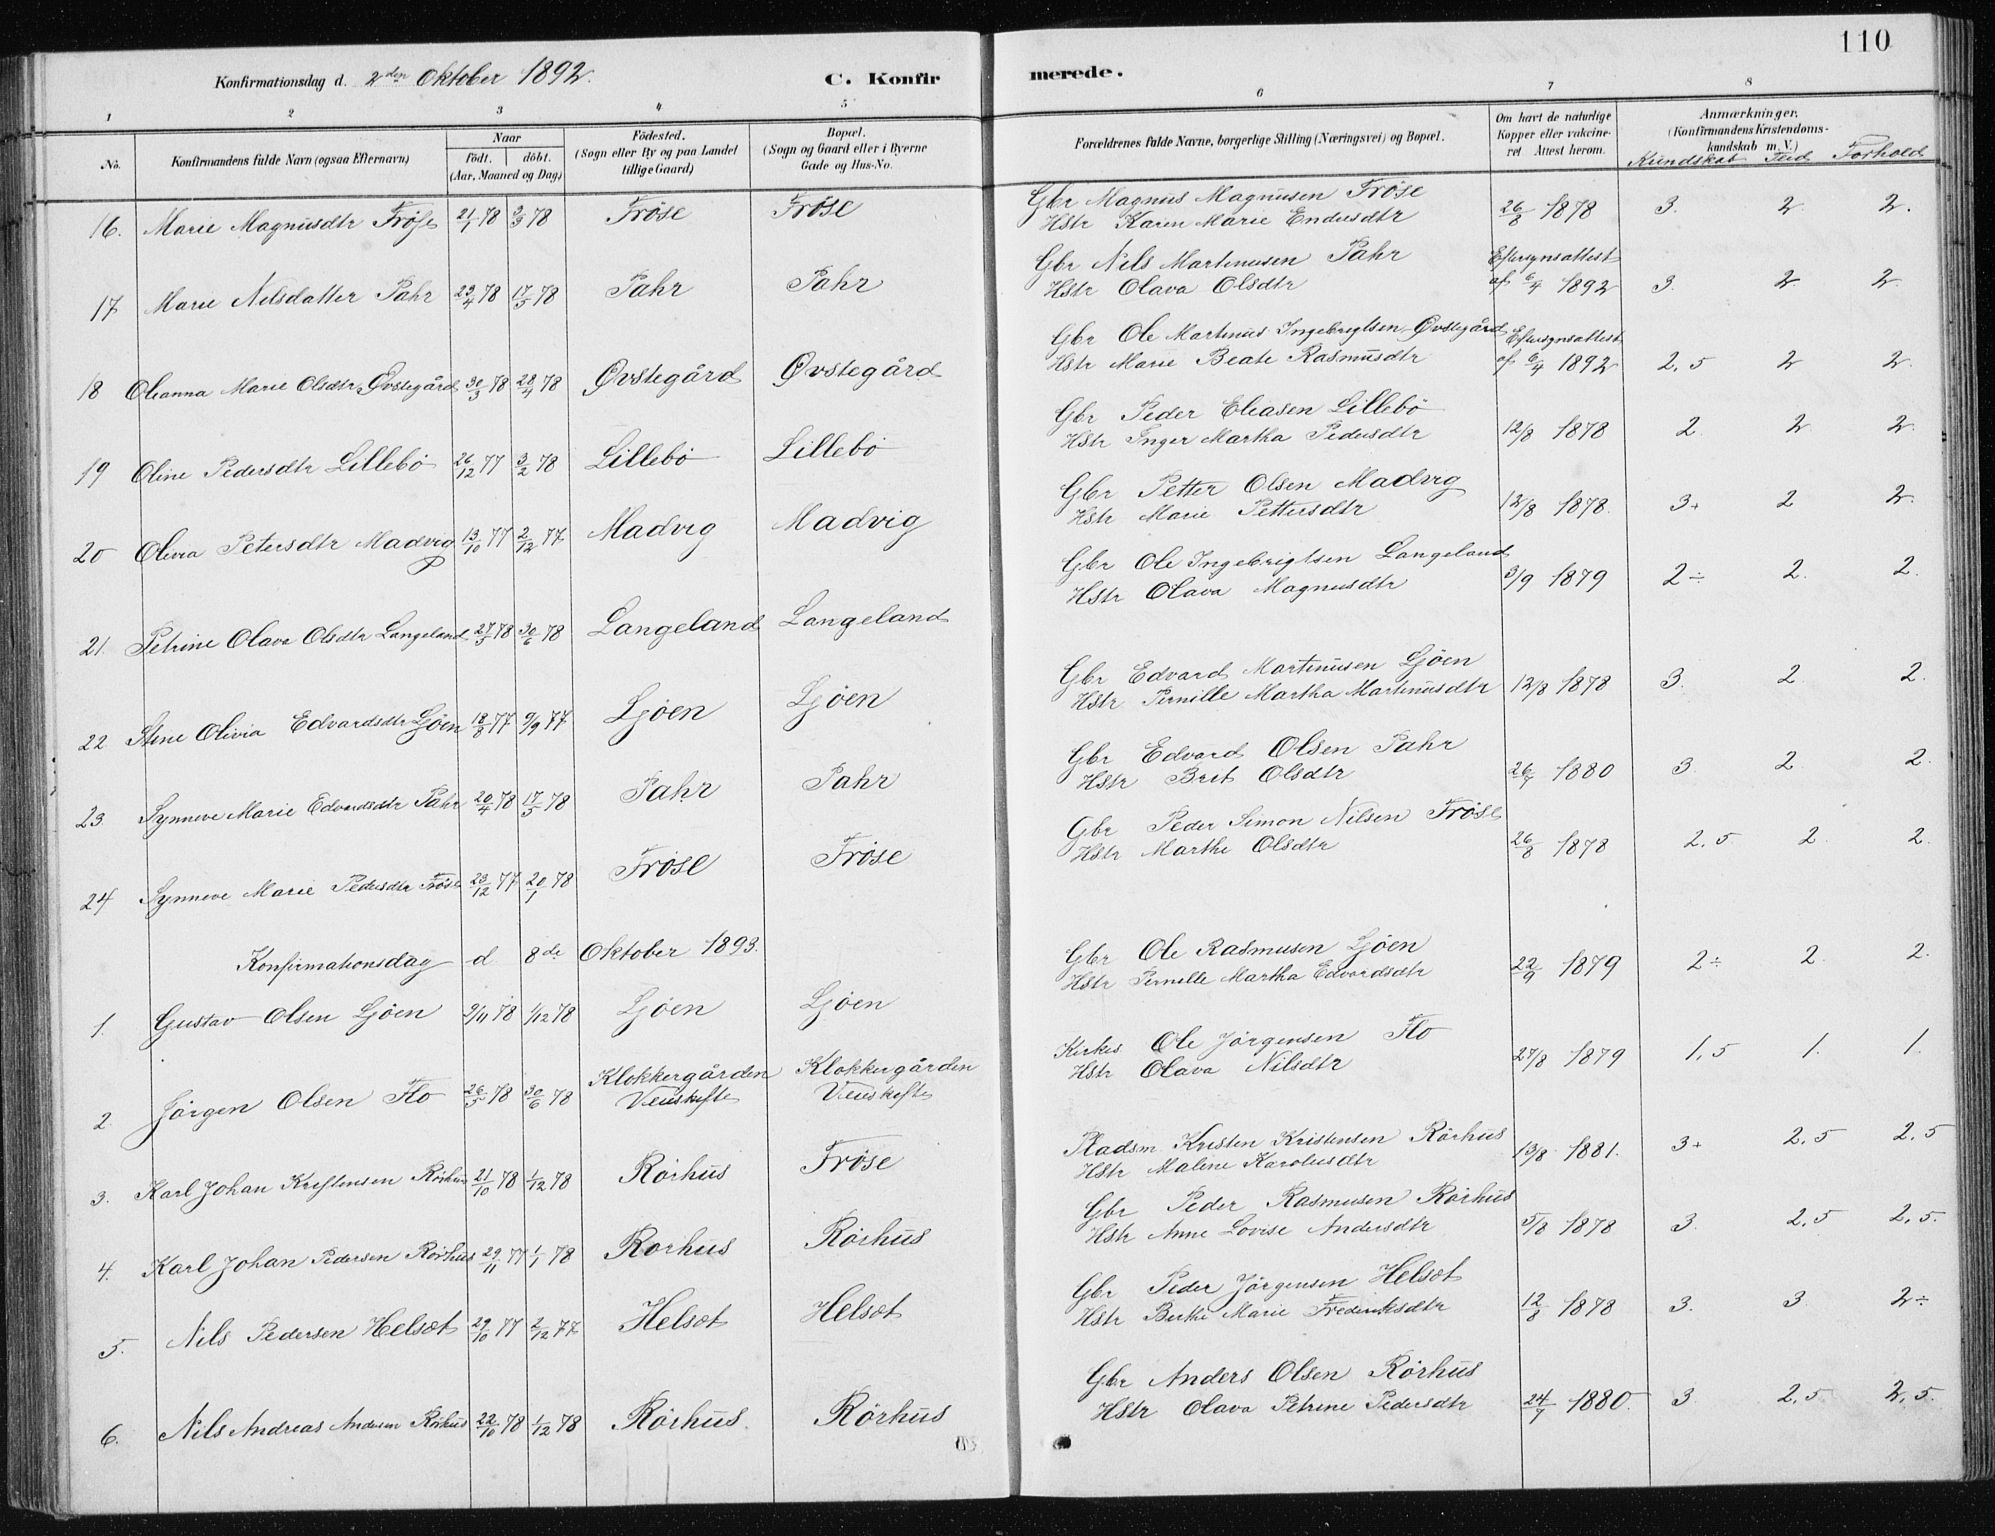 110
Konfirmationsdag d. 2den Oktober 1892.
C. Konfirmerede.
1 2 3 4 5 6 7 8
No.
Konfirmandens fulde Navn (ogsaa Efternavn)
Naar
Födt. döbt.
(Aar, Maaned og Dag)
Födested.
(Sogn eller By og paa Landet
tillige Gaard)
Bopæl.
(Sogn og Gaard eller i Byerne
Gade og Hus-No.
Forældrenes fulde Navne, borgerlige Stilling (Næringsvei) og Bopæl.
Om havt de naturlige
Kopper eller vakcine-
ret. Attest herom.
Anmærkninger.
(Konfirmandens Kristendoms-
kundskab m. V.)
Kundskab Flid Forhold
16. Marie Magnusdtr Fröse 21/1 78 3/3 78 Fröse Fröse Gbr Magnus Magnusen Fröse
Hstr Karen Marie Endresdtr 26/8 1878 3. 2. 2.
17 Marie Nilsdatter Pahr 23/4 78 17/5 78 Pahr Pahr Gbr Nils Martinusen Pahr Eftersynsattest
Hstr Olava Olsdtr af 6/4 1892 3. 2. 2.
18 Oleanna Marie Olsdtr Øvstegård 30/3 78 28/4 78 Øvstegård Øvstegård Gbr Ole Martinus Ingebrigtsen Øvstegård Eftersynsattest
Hstr Marie Beate Rasmusdtr af 6/4 1892 2,5 2 2.
19 Oline Pedersdtr Lillebö 26/12 77 3/2 78 Lillebö Lillebö Gbr Peder Eliasen Lillebö
Hstr Inger Martha Pedersdtr 12/8 1878 2. 2. 2.
20 Olivia Petersdtr Madvig 13/10 77 2/12 77 Madvig Madvig Gbr Petter Olsen Madvig
Hstr Marie Pettersdtr 12/8 1878. 3+ 2 2.
21. Petrine Olava Olsdtr Langeland 27/5 78 30/6 78 Langeland Langeland Gbr Ole Ingebrigtsen Langeland
Hstr Olava Magnusdtr 3/9 1879 2÷ 2. 2.
22 Stine Olivia Edvardsdtr Ljöen 18/8 77 9/9 77 Ljöen Ljöen Gbr Edvard Martinusen Ljöen
Hstr Pernille Martha Martinusdtr 12/8 1878 3. 2. 2.
23 Synneve Marie Edvardsdtr Pahr 20/4 78 17/5 78 Pahr Pahr Gbr Edvard Olsen Pahr
Hstr Brit Olsdtr 26/7 1880 3. 2. 2.
24 Synneve Marie Pedersdtr Fröse 23/12 77 20/1 78 Fröse Fröse Gbr Peder Simon Nilsen Fröse
Hstr Marthe Olsdtr 26/8 1878 2,5 2. 2.
Konfirmationsdag d 8de Oktober 1893.
1. Gustav Olsen Ljöen 9/11 78 1/12 78 Ljöen Ljöen Gbr Ole Rasmusen Ljöen
Hstr Pernille Martha Edvardsdtr 22/9 1879 2÷ 2. 2.
2. Jörgen Olsen Flo 26/5 78 30/6 78 Klokkergården Klokkergården Kirkes. Ole Jörgensen Flo
Hstr Olava Nilsdtr 27/8 1879 1,5 1. 1.
3. Karl Johan Kristensen Rörhus 21/10 78 1/12 78 Rörhus Fröse Pladsm Kristen Kristensen Rörhus
Hstr Maline Karolusdtr 13/8 1881. 3+ 2,5 2,5
4. Karl Johan Pedersen Rörhus 29/11 77 1/1 78 Rorhus Rörhus Gbr Peder Rasmusen Rörhus
Hstr Anne Lovise Andersdtr 5/8 1878 3. 2,5 2,5.
5. Nils Pedersen Helset 29/10 77 2/12 77 Helset Helset Gbr Peder Jörgensen Helset
Hstr Berthe Marie Frederiksdtr 12/8 1878 3. 3 2÷
6. Nils Andreas Andersen Rörhus 22/10 78 1/12 78 Rörhus. Rörhus Gbr Anders Olsen Rörhus
Hstr Olava Petrine Pedersdtr 24/7 1880. 3. 2,5 2,5.